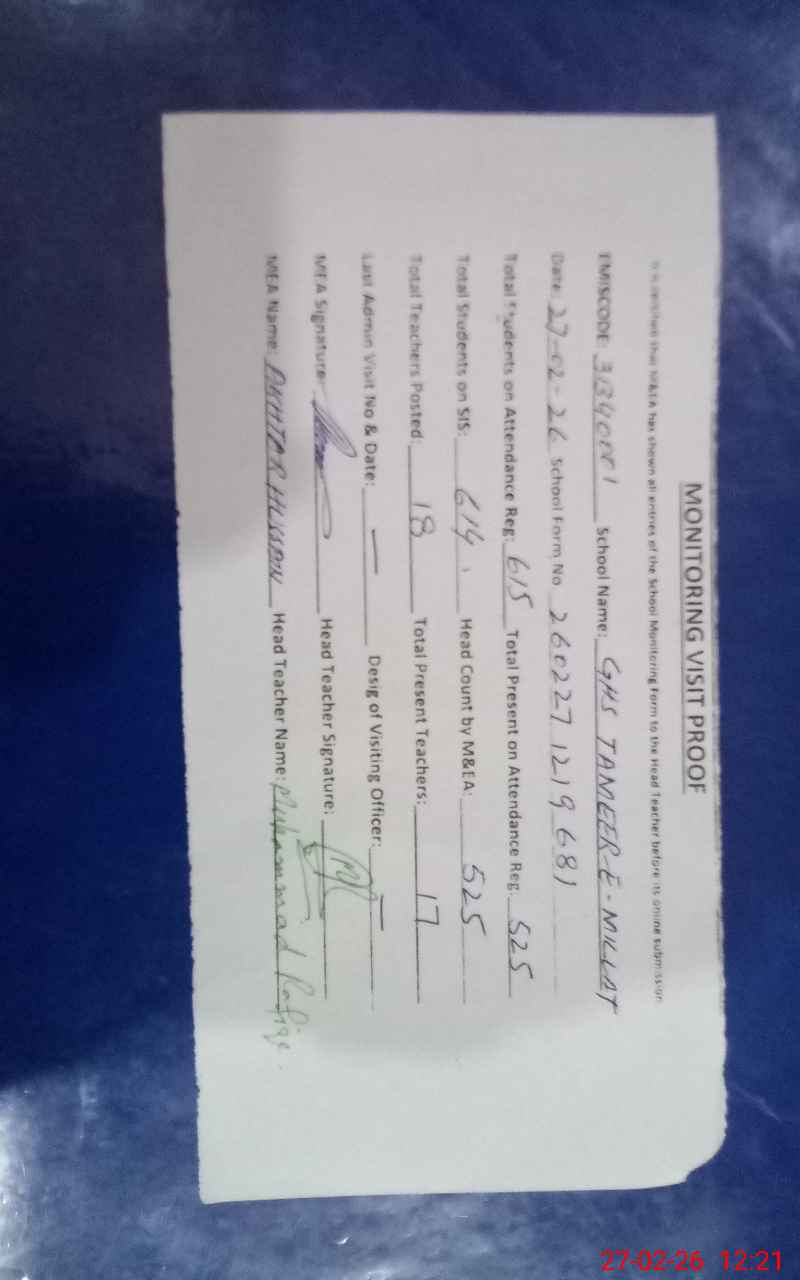 MONITORING VISIT PROOF
It is certified that M&EA has shown all entries of the School Monitoring Form to the Head Teacher before its online submission
EMISCODE: School Name: GHS TAMEER-E-MILLAT
Date: 27-02-26 School Form No 260227 1219 681
Total Students on Attendance Reg: 615 Total Present on Attendance Reg: 525
Total Students on SIS: 614. Head Count by M&EA: 525
Total Teachers Posted: 18 Total Present Teachers: 17
Last Admin Visit No & Date: — Desig of Visiting Officer: —
MEA Signature: Head Teacher Signature:
MEA Name: AKHTAR HUSSAIN Head Teacher Name: Muhammad Rafique.
27-02-26 12:21